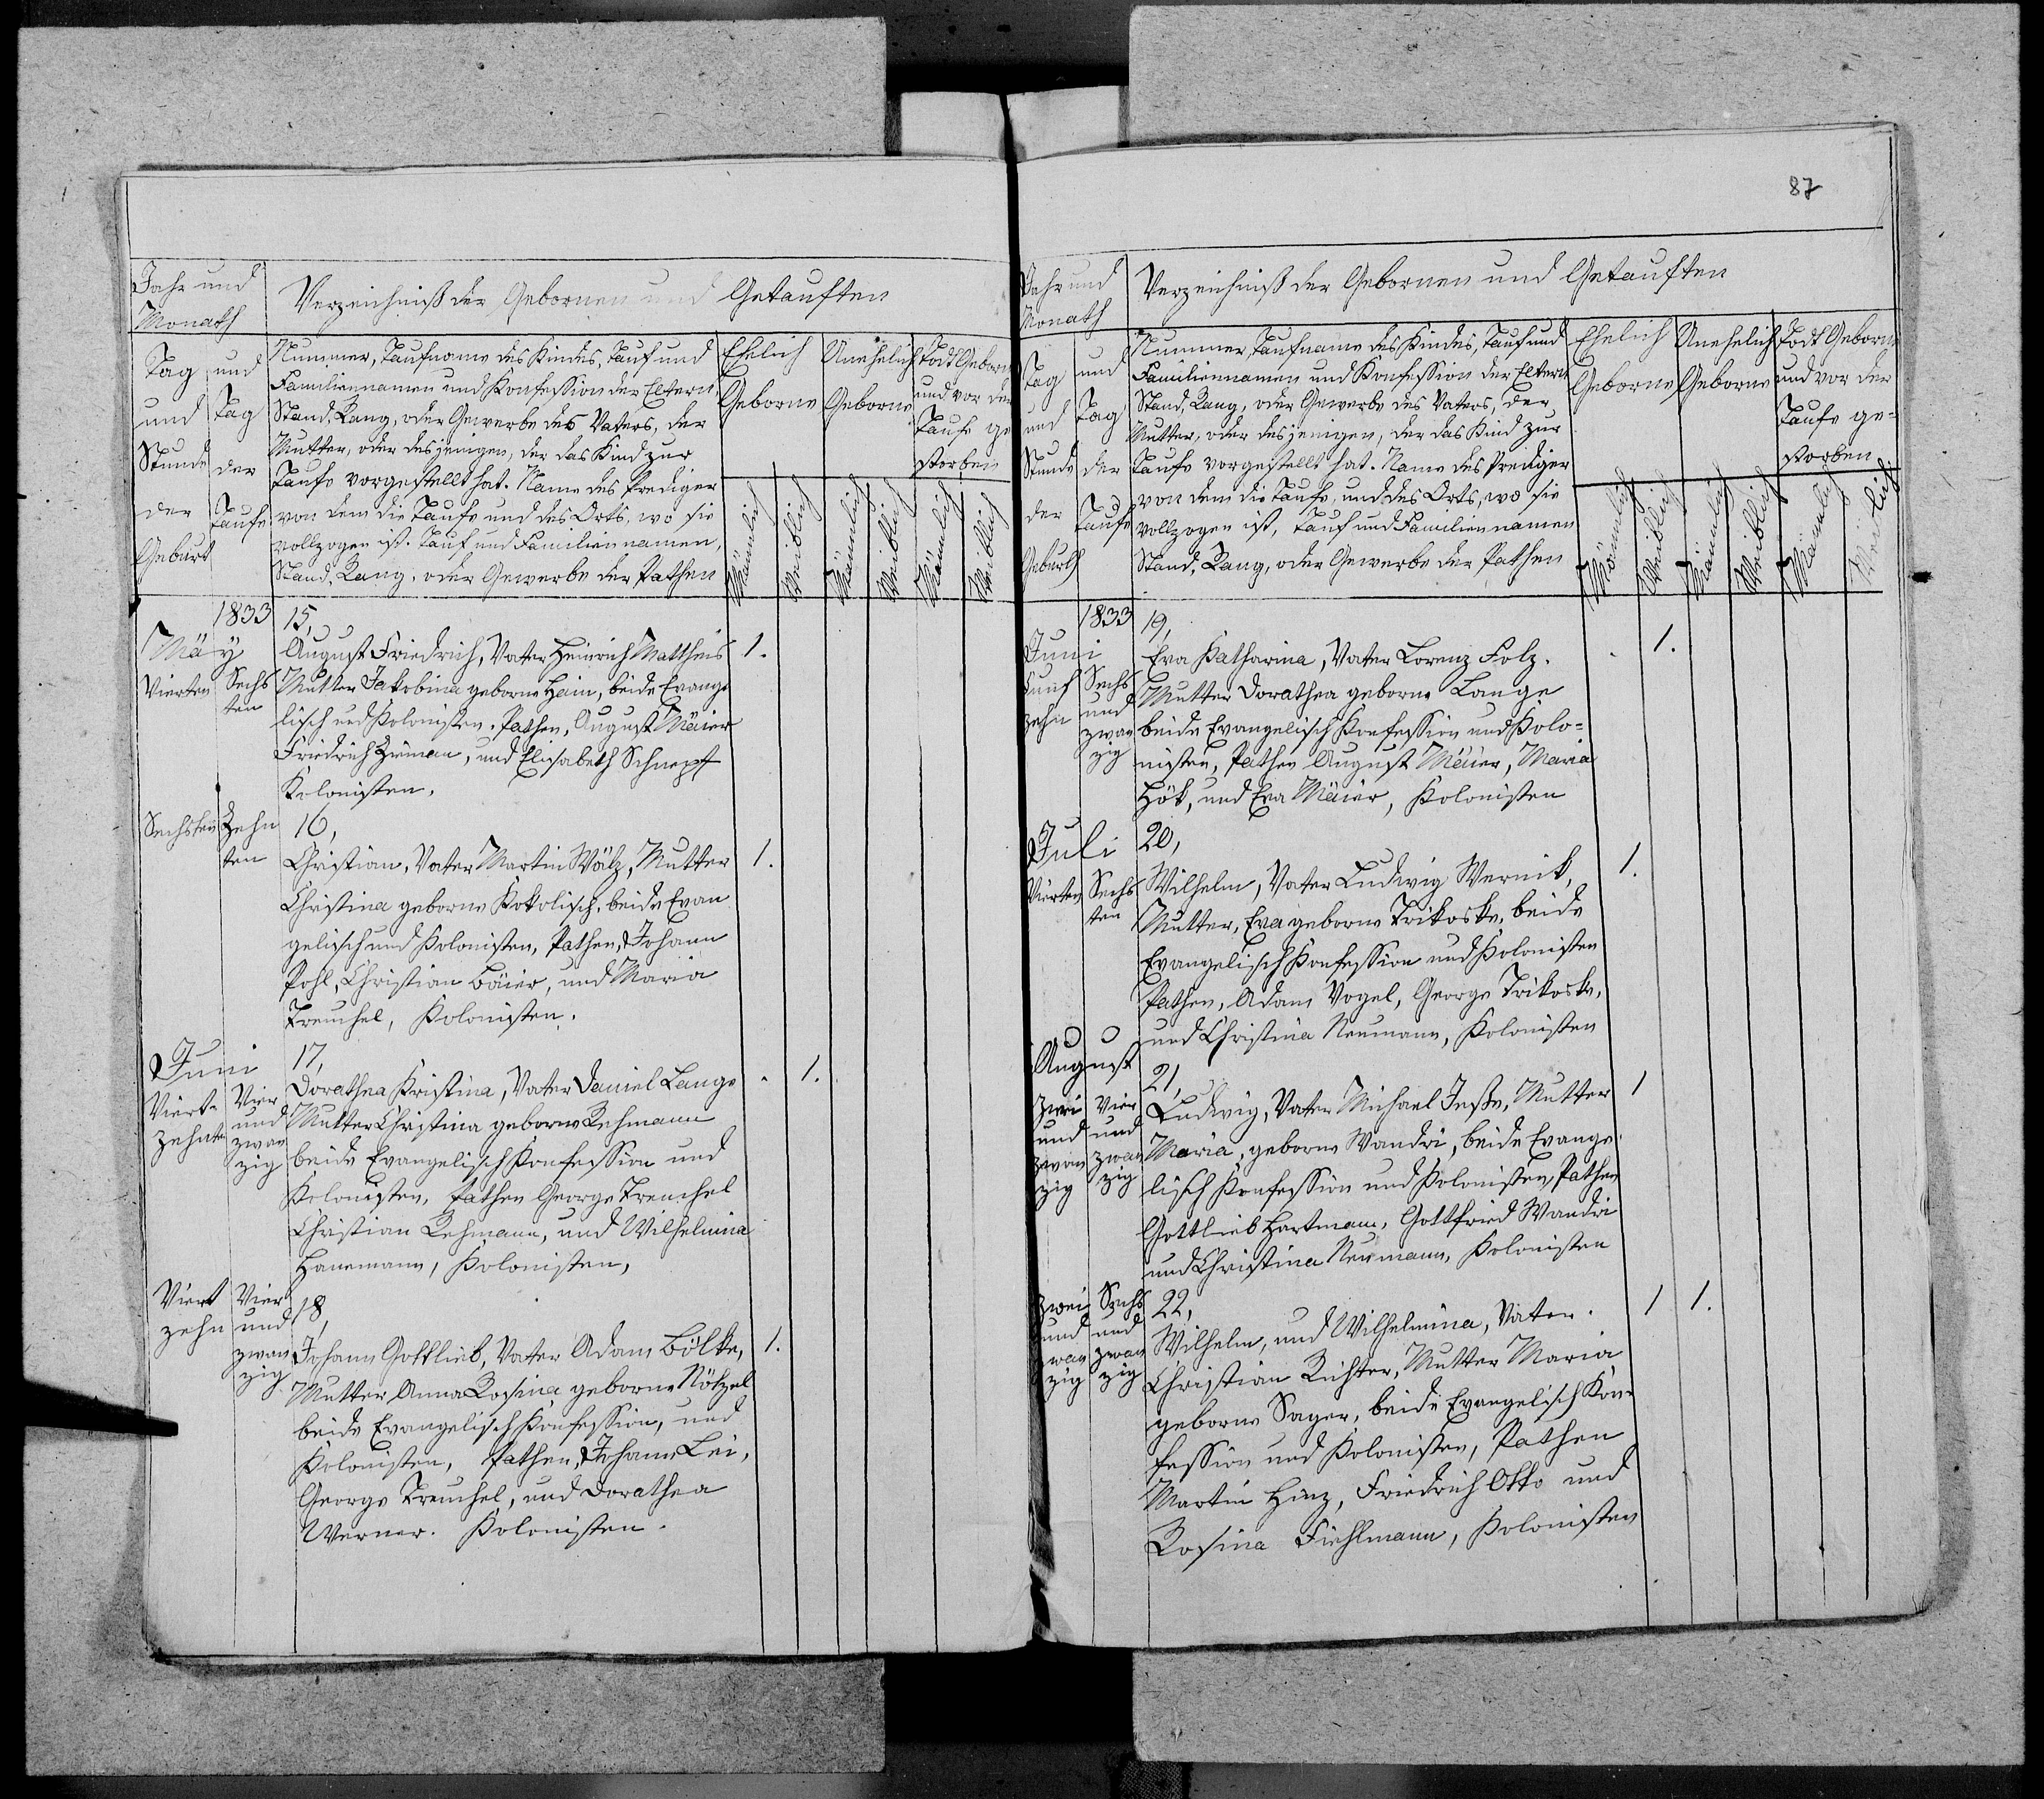 Jahr und
Monath
Verzeichniß der Gebornen und Getauften
Tag
und
Stunde
der
Geburt
und
Tag
der
Taufe
Nummer, Taufname des Kindes, Tauf und
Familiennamen und Konfession der Eltern
Stand, Rang, oder Gewerbe des Vaters, der
Mutter, oder desjenigen, der das Kind zur
Taufe vorgestellt hat. Name des Prediger
von dem die Taufe und des Orts, wo sie
vollzogen ist. Tauf und Familiennamen,
Stand, Rang, oder Gewerbe der Pathen
Ehelich
Geborne
Unehelich
Geborne
Todt Geborn
und vor der
Taufe ge
storben
Männlich
Weiblich
Männlich
Weiblich
Männlich
Weiblich
1833
Mäy
Vierten
Sechs
ten
15,
August Friedrich, Vater Heinrich Mattheis 1.
Mutter Jakobina geborne Hein, beide Evange
lisch und Kolonisten. Pathen, August Mäier
Friedrich Ziman, und Elisabeth Schnepf
Kolonisten.
Sechsten
Zehn
ten
16,
Christian, Vater Martin Wälz, Mutter 1.
Christina geborne Kokolisch, beide Evan
gelisch und Kolonisten, Pathen, Johann
Pohl, Christian Bäier, und Maria
Treuchel, Kolonisten.
Juni
Viert-
zehnte
Vier
und
zwan
zig
17,
Dorathea Kristina, Vater Daniel Lange . 1.
Mutter Christina geborne Rehmann
beide Evangelisch Konfession und
Kolonisten, Pathen George Treuchel
Christian Rehmann, und Wilhelmina
Hanemann, Kolonisten,
Viert
zehn
Vier
und
zwan
zig
18,
Johann Gottlieb, Vater Adam Bölke, 1.
Mutter Anna Rosina geborne Nötzel
beide Evangelisch Konfession, und
Kolonisten, Pathen, Johann Lei,
George Treuchel, und Dorathea
Werner. Kolonisten.
87
Jahr und
Monath
Verzeichniß der Gebornen und Getauften
Tag
und
Stunde
der
Geburth
und
Tag
der
Taufe
Nummer, Taufname des Kindes, Tauf und
Familiennamen und Konfession der Eltern
Stand, Rang, oder Gewerbe des Vaters, der
Mutter, oder desjenigen, der das Kind zur
Taufe vorgestellt hat. Name des Prediger
von dem die Taufe, und des Orts, wo sie
vollzogen ist, Tauf und Familiennamen
Stand, Rang, oder Gewerbe der Pathen
Ehelich
Geborne
Unehelich
Geborne
Todt Geborne
und vor der
Taufe ge-
storben
Männlich
Weiblich
Männlich
Weiblich
Männlich
Weiblich
1833
Juni
Funf
zehn
Sechs
und
zwan
zig
19,
Eva Katharina, Vater Lorenz Folz. . 1.
Mutter Dorathea geborne Lange
beide Evangelisch Konfession und Kolo=
nisten, Pathen August Mäier, Maria
Hök, und Eva Mäier, Kolonisten
Juli
Vierten
Sechs
ten
20,
Wilhelm, Vater Ludwig Wernik, 1.
Mutter, Eva geborne Trikoske, beide
Evangelisch Konfession und Kolonisten
Pathen, Adam Vogel, George Trikoske,
und Christina Neumann, Kolonisten
August
Zwei
und
zwan
zig
Vier
und
zwan
zig
21,
Ludwig, Vater Michael Jeske, Mutter 1
Maria, geborne Wandri, beide Evange
lisch Konfession und Kolonisten, Pathen
Gottlieb Hartmann, Gottfried Wandri
und Christina Neumann, Kolonisten
Zwei
und
zwan
zig
Sechs
und
zwan
zig
22,
Wilhelm, und Wilhelmina, Vater. 1 1.
Christian Richter, Mutter Maria
geborne Sager, beide Evangelisch Kon-
fession und Kolonisten, Pathen
Martin Hinz, Friedrich Otto und
Rosina Fiehlmann, Kolonisten